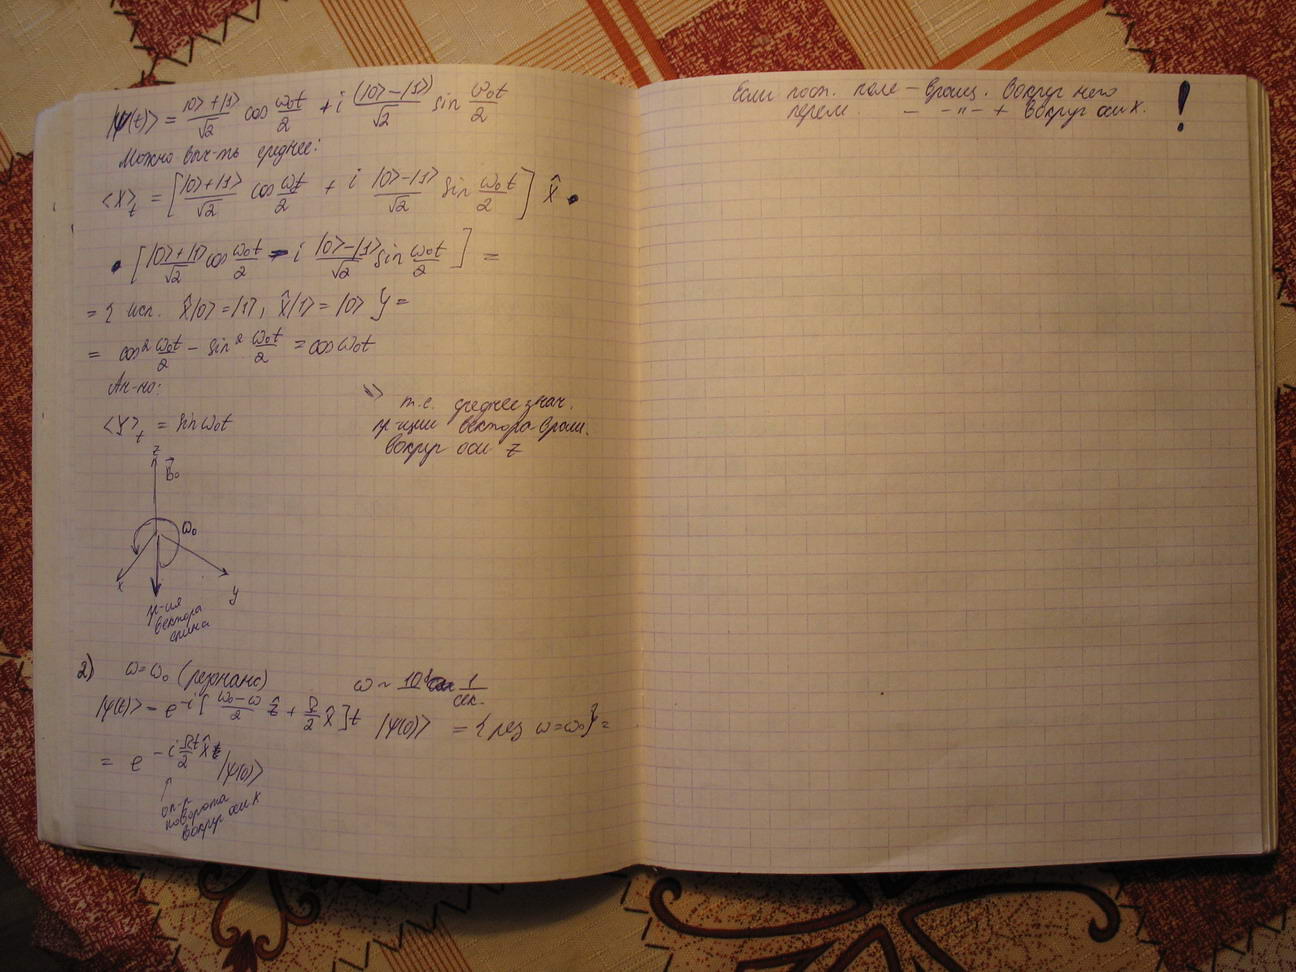 |ψ(t)> = |0>+|1>/√2 cos ω₀t/2 + i (|0>-|1>)/√2 sin ω₀t/2
Можно выч-ть среднее:
<X>t = [|0>+|1>/√2 cos ω₀t/2 + i |0>-|1>/√2 sin ω₀t/2] X̂ •
• [|0>+|1>/√2 cos ω₀t/2 - i |0>-|1>/√2 sin ω₀t/2] =
= { исп. X̂|0> = |1>, X̂|1> = |0> } =
= cos² ω₀t/2 - sin² ω₀t/2 = cos ω₀t
Ан-но:
<Y>t = sin ω₀t
=> т.е. среднее знач.
пр-ции вектора вращ.
вокруг оси z
z
B₀
ω₀
x
y
пр-ия
вектора
спина
2) ω=ω₀ (резонанс)
ω ~ 1/сек.
|ψ(t)> = e^-i[ω₀-ω/2 Ẑ + Ω/2 X̂]t |ψ(0)> = {рез ω=ω₀} =
= e^-iΩt/2 X̂ |ψ(0)>
оп-р
поворота
вокруг оси X
Если пост. поле – вращ. вокруг него
перем. — -"- + вокруг оси X.
!